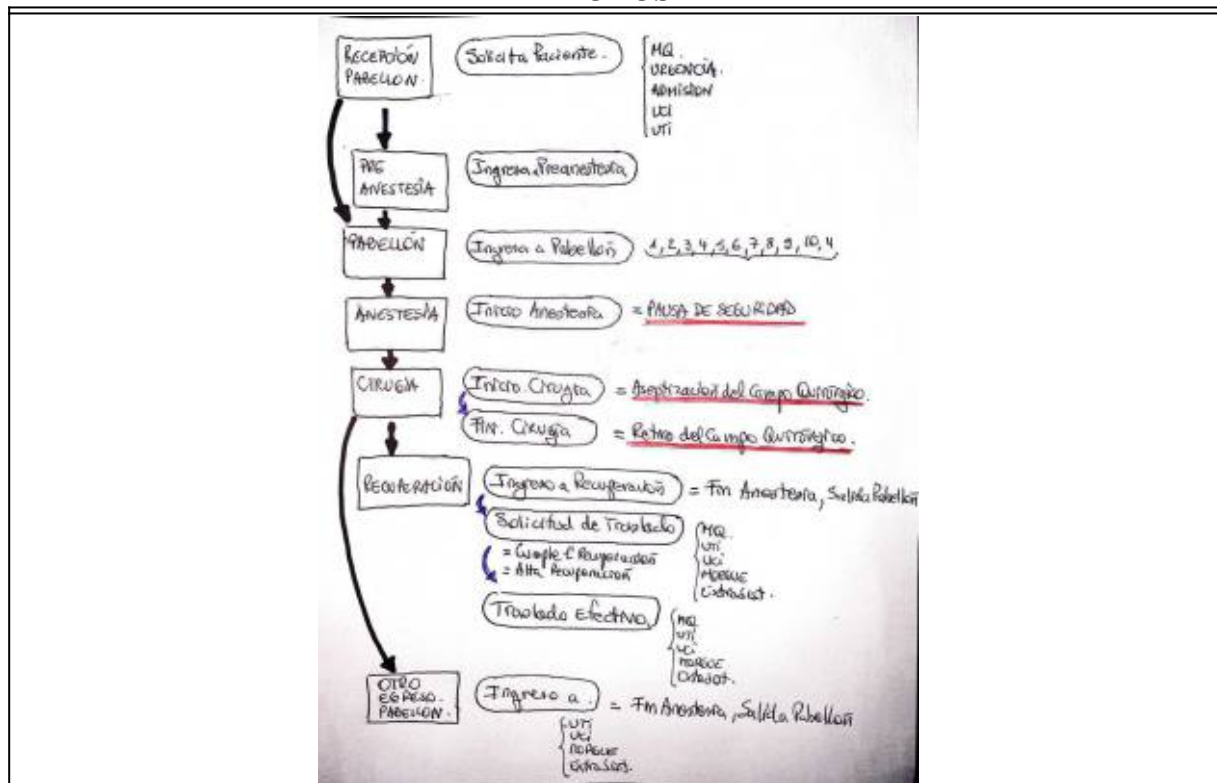 RECEPCIÓN
PABELLON.
Solicita Paciente.
MQ.
URGENCIA.
ADMISION
UCI
UTI
PRE
ANESTESÍA
Ingresa Preanestesia
PABELLÓN
Ingresa a Pabellón
1, 2, 3, 4, 5, 6, 7, 8, 9, 10, 4
ANESTESÍA
Inicio Anestesia = PAUSA DE SEGURIDAD
CIRUGÍA
Inicio Cirugía = Aseptización del Campo Quirúrgico.
Fin. Cirugía = Retiro del Campo Quirúrgico.
RECUPERACIÓN
Ingreso a Recuperación = Fin Anestesia, Salida Pabellón
Solicitud de Traslado
MQ.
UTI
UCI
MORGUE
Extrasist.
= Cumple Recuperación
= Alta Recuperación
Traslado Efectivo
MQ
UTI
UCI
MORGUE
Extrasist.
OTRO
EGRESO.
PABELLON.
Ingreso a. = Fin Anestesia, Salida Pabellón
UTI
UCI
MORGUE